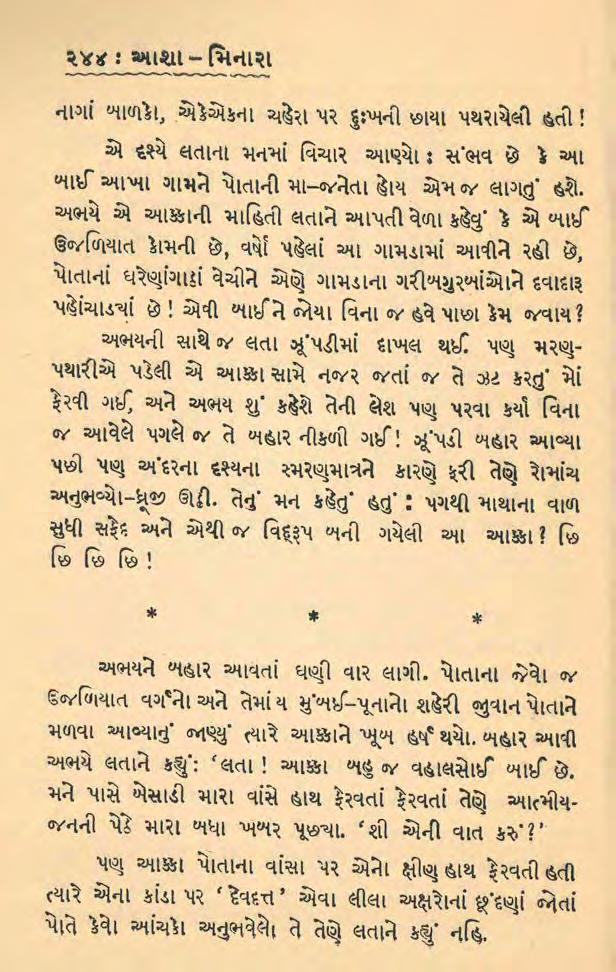 ૨૪૪ : આશા – મિનારા
નાગાં બાળકો, એકેએકના ચહેરા પર દુઃખની છાયા પથરાયેલી હતી !
એ દૃશ્યે લતાના મનમાં વિચાર આણ્યો : સંભવ છે કે આ
બાઈ આખા ગામને પોતાની મા–જનેતા હોય એમ જ લાગતું હશે.
અભયે એ આક્કાની માહિતી લતાને આપતી વેળા કહેવું કે એ બાઈ
ઉજળિયાત કોમની છે, વર્ષો પહેલાં આ ગામડામાં આવીને રહી છે,
પોતાનાં ઘરેણાંગાઠાં વેચીને એણે ગામડાના ગરીબગુરબાંઓને દવાદારૂ
પહોંચાડ્યાં છે ! એવી બાઈને જોયા વિના જ હવે પાછા કેમ જવાય ?
અભયની સાથે જ લતા ઝૂંપડીમાં દાખલ થઈ. પણ મરણ-
પથારીએ પડેલી એ આક્કા સામે નજર જતાં જ તે ઝટ કરતું મોં
ફેરવી ગઈ, અને અભય શું કહેશે તેની લેશ પણ પરવા કર્યા વિના
જ આવેલે પગલે જ તે બહાર નીકળી ગઈ ! ઝૂંપડી બહાર આવ્યા
પછી પણ અંદરના દૃશ્યના સ્મરણમાત્રને કારણે ફરી તેણે રોમાંચ
અનુભવ્યો–ધ્રૂજી ઊઠી. તેનું મન કહેતું હતું : પગથી માથાના વાળ
સુધી સફેદ અને એથી જ વિદ્રૂપ બની ગયેલી આ આક્કા ? છિ
છિ છિ છિ !
* * *
અભયને બહાર આવતાં ઘણી વાર લાગી. પોતાના જેવો જ
ઉજળિયાત વર્ગનો અને તેમાંય મુંબઈ–પૂનાનો શહેરી જુવાન પોતાને
મળવા આવ્યાનું જાણ્યું ત્યારે આક્કાને ખૂબ હર્ષ થયો. બહાર આવી
અભયે લતાને કહ્યું : ‘લતા ! આક્કા બહુ જ વહાલસોઈ બાઈ છે.
મને પાસે બેસાડી મારા વાંસે હાથ ફેરવતાં ફેરવતાં તેણે આત્મીય-
જનની પેઠે મારા બધા ખબર પૂછ્યા. ‘શી એની વાત કરું ?’
પણ આક્કા પોતાના વાંસા પર એનો ક્ષીણ હાથ ફેરવતી હતી
ત્યારે એના કાંડા પર ‘દેવદત્ત’ એવા લીલા અક્ષરોનાં છૂંદણાં જોતાં
પોતે કેવો આંચકો અનુભવેલો તે તેણે લતાને કહ્યું નહિ.